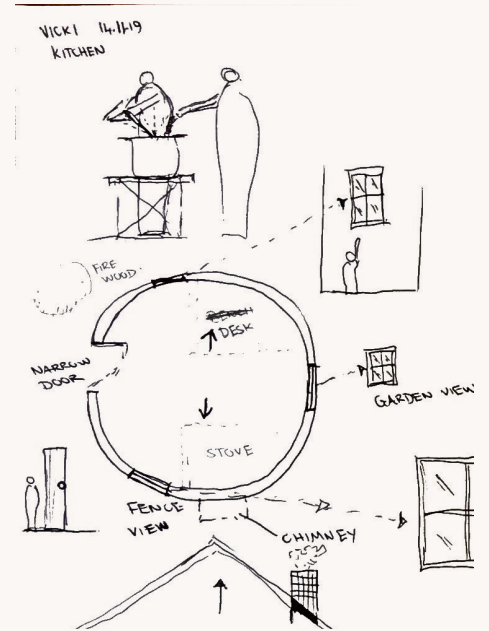 VICKI 14.11.19
KITCHEN
FIRE
WOOD
DESK
NARROW
DOOR
GARDEN VIEW
STOVE
FENCE
VIEW
CHIMNEY